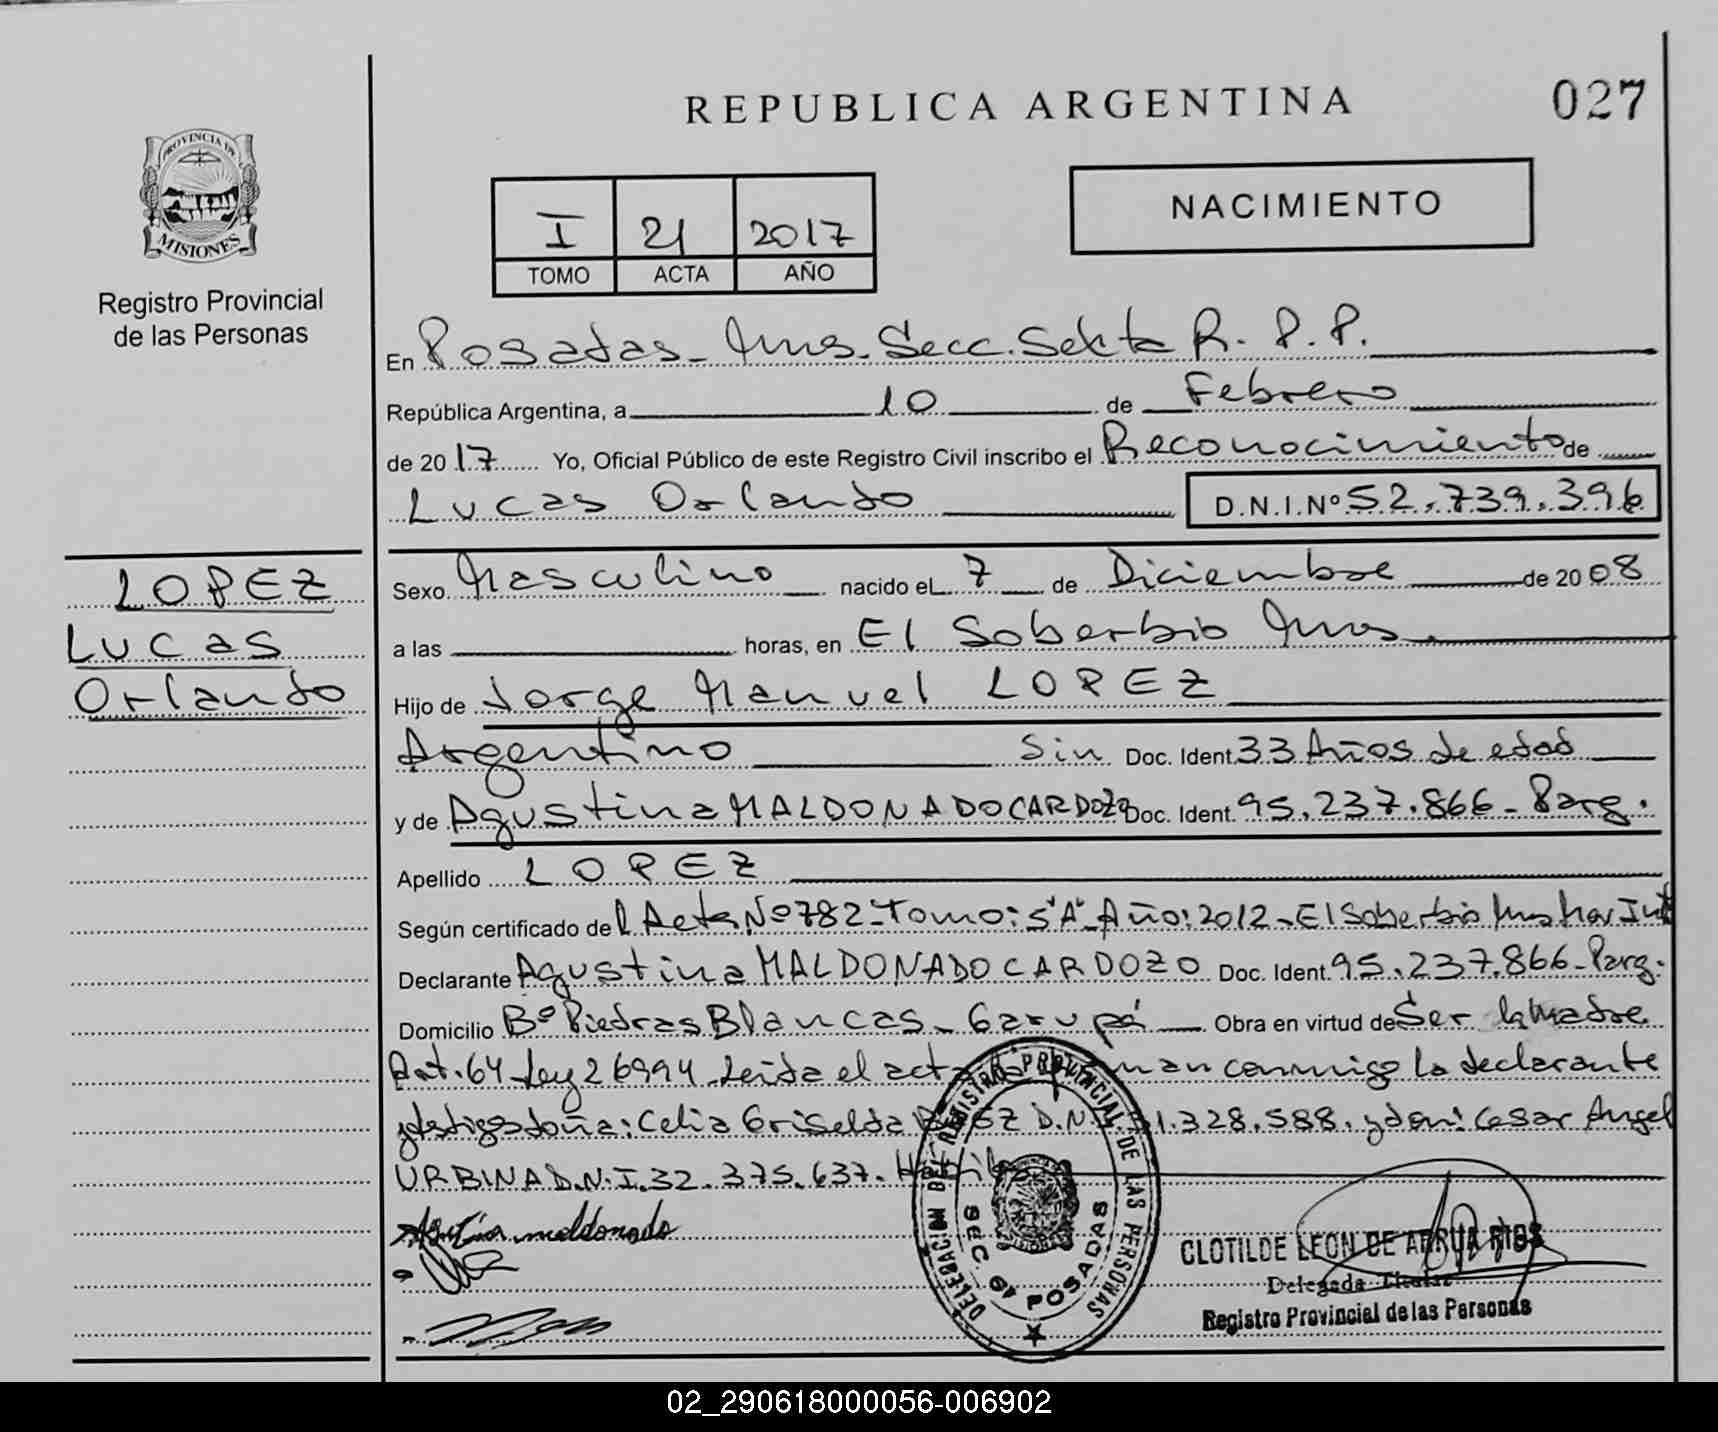 REPUBLICA ARGENTINA
027
PROVINCIA DE
MISIONES
Registro Provincial
de las Personas
I 21 2017
TOMO ACTA AÑO
NACIMIENTO
En Posadas - Mnes. Secc. Sexta R. P. P.
República Argentina, a 10 de Febrero
de 2017 Yo, Oficial Público de este Registro Civil inscribo el Reconocimiento de
Lucas Orlando D.N.I.Nº 52.739.396
LOPEZ
Lucas
Orlando
Sexo Masculino nacido el 7 de Diciembre de 2008
a las horas, en El Soberbio Mnes.
Hijo de Jorge Manuel LOPEZ
Argentino Sin Doc. Ident. 33 Años de edad
y de Agustina MALDONADO CARDOZO Doc. Ident. 95.237.866 - Parg.
Apellido LOPEZ
Según certificado del Acta Nº 782 - Tomo: 5"A" - Año: 2012 - El Soberbio
Declarante Agustina MALDONADO CARDOZO Doc. Ident. 95.237.866 - Parg.
Domicilio Bº Piedras Blancas - Garupá Obra en virtud de Ser la Madre
Art. 64 - Ley 26994 - Leida el acta conmigo la declarante
y testigos doña: Celia Griselda D.N. 1.328.588. y don: Cesar Angel
URBINA D.N.I. 32.375.637.
Agustina maldonado
DELEGACION DEL REGISTRO PROVINCIAL DE LAS PERSONAS
SEC. 6ª POSADAS
CLOTILDE LEON DE ARRUA RIOS
Delegada Titular
Registro Provincial de las Personas
02_290618000056-006902